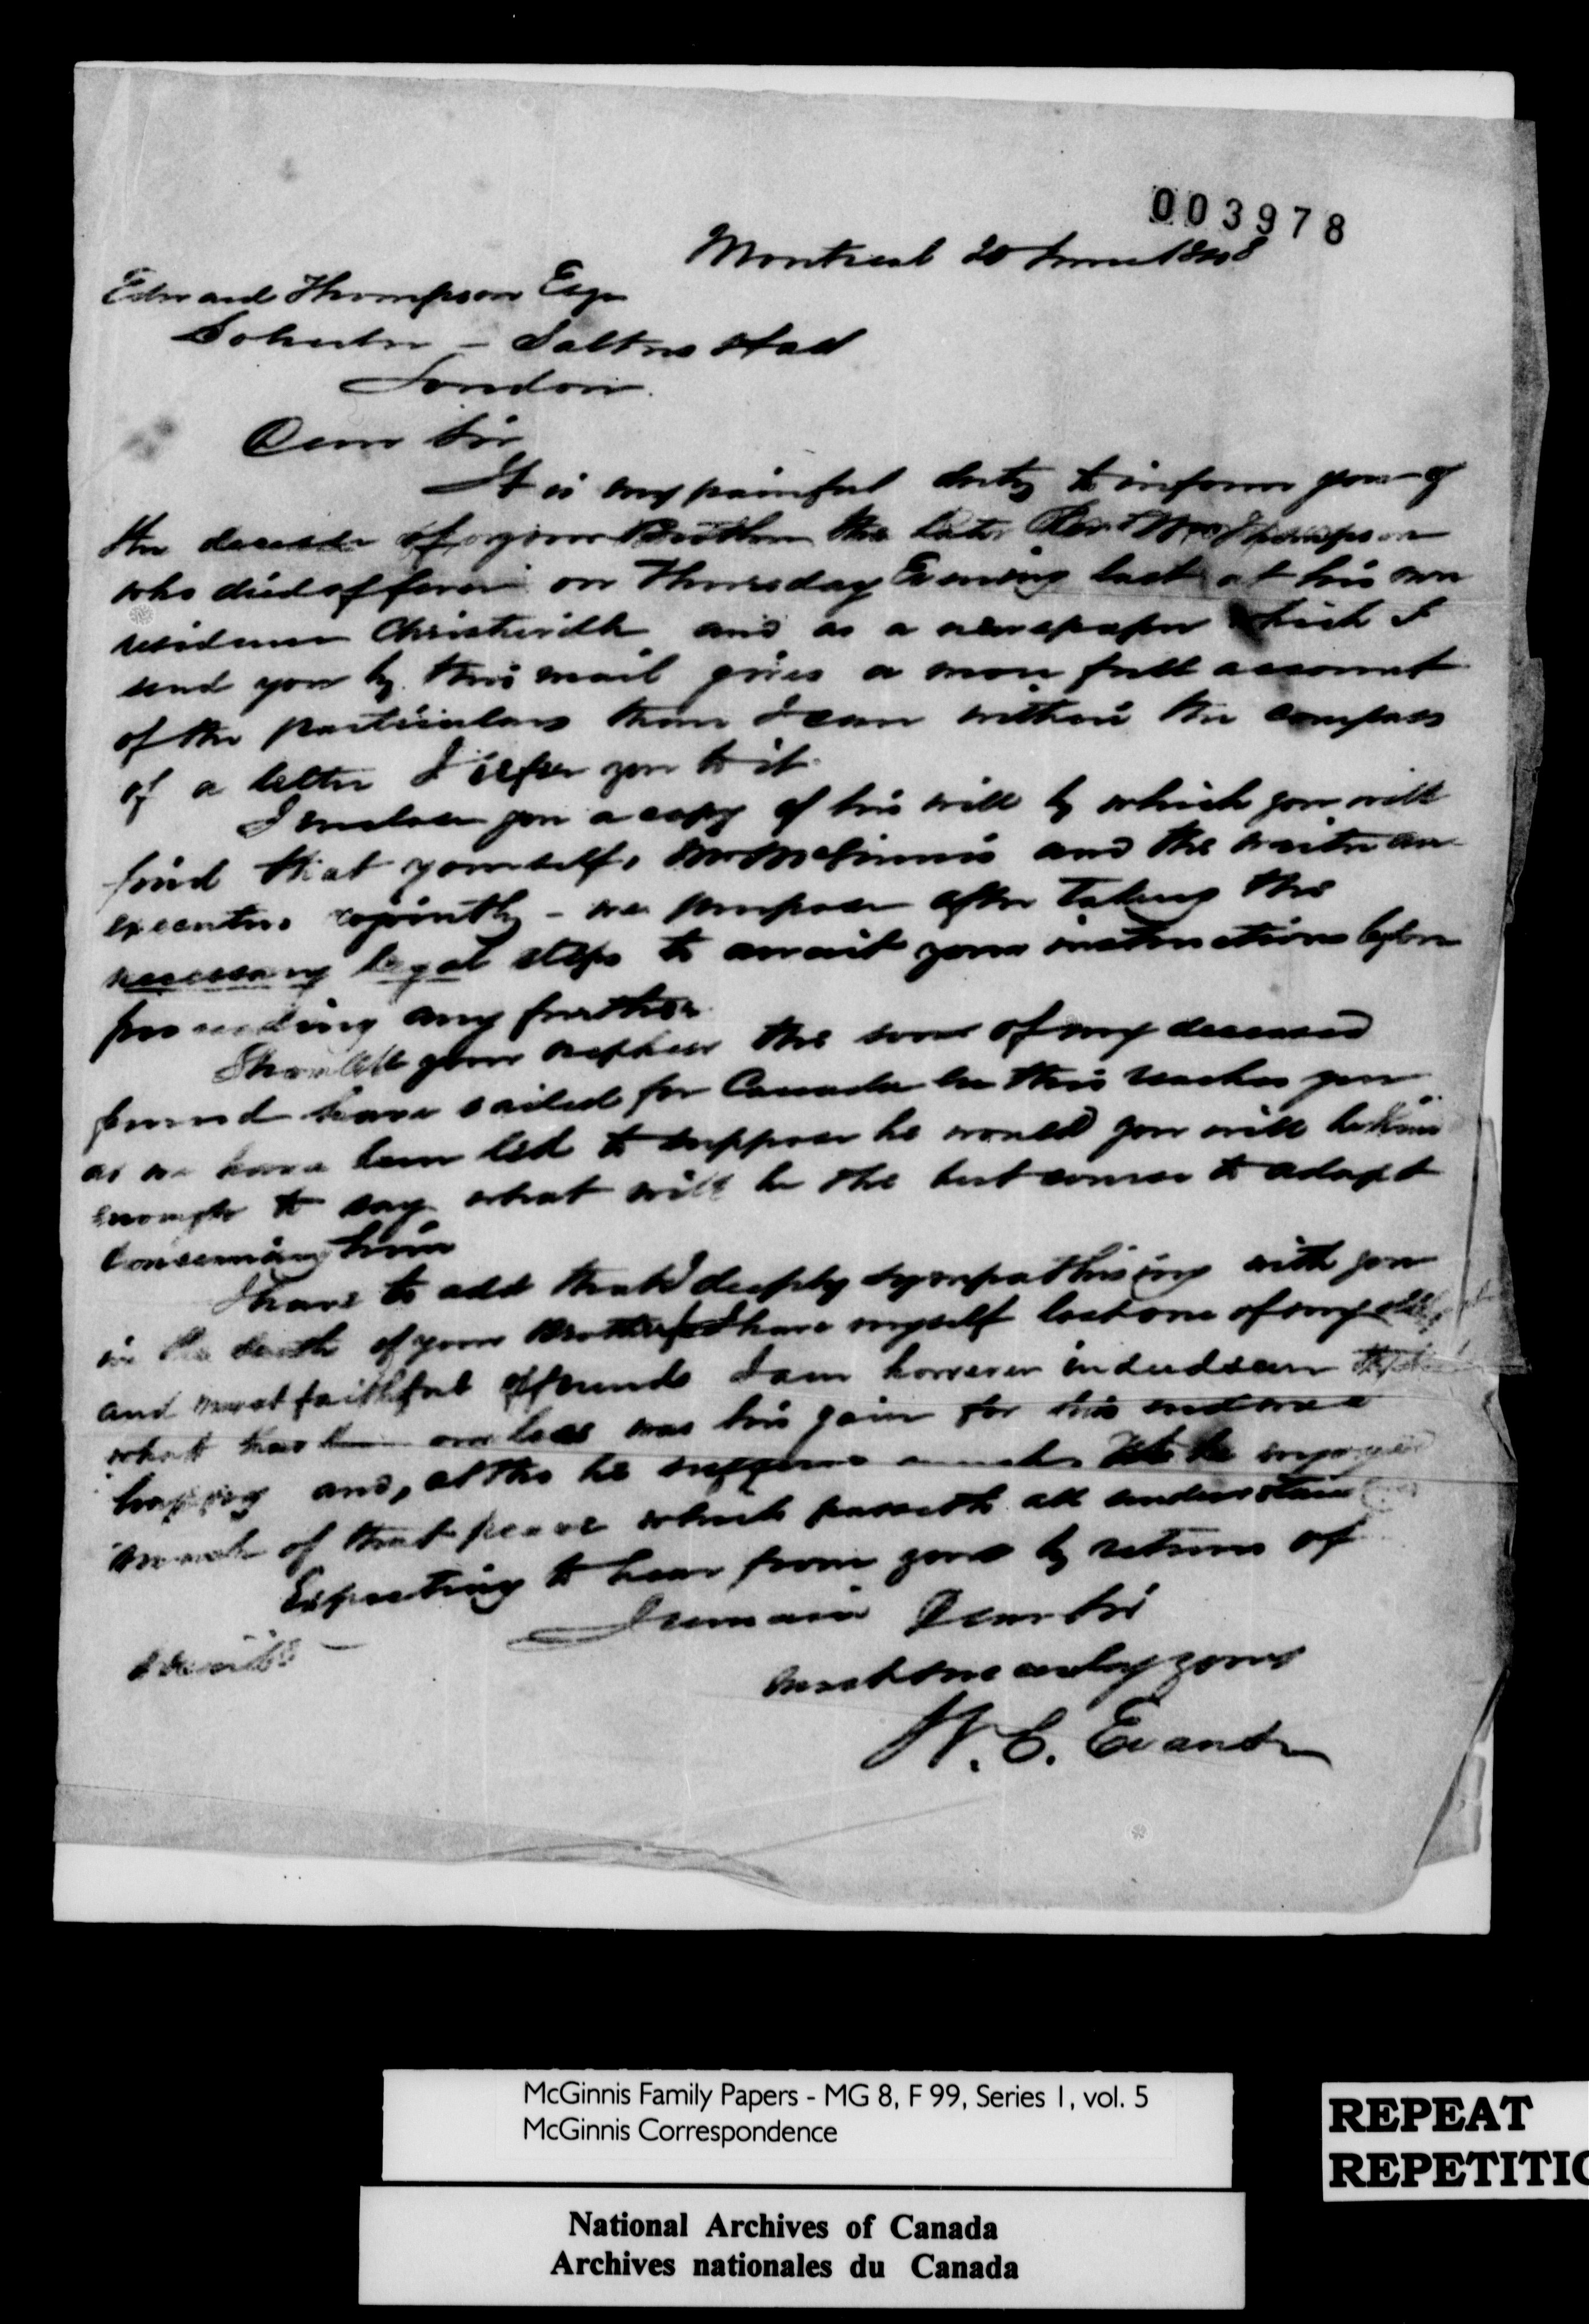 003978
Montreal 20 June 1848
Edward Thompson Esqr
Solicitor - Salters Hall
London.
Dear Sir
It is my painful duty to inform you of
the decease of your Brother the late Revd Thompson
who died of fever on Thursday Evening last at his own
residence Christieville and as a newspaper which I
send you by this mail gives a more full account
of the particulars than I can within the compass
of a letter I refer you to it.
I enclose you a copy of his will by which you will
find that yourself, Mr McGinnis and the writer are
executors conjointly - we propose after taking the
necessary legal steps to await your instructions before
proceeding any further.
Should your nephew the son of my deceased
friend have sailed for Canada ere this reaches you
as we have been led to suppose he would you will be kind
enough to say what will be the best course to adopt
concerning him
I have to add that deeply sympathising with you
in the death of your Brother I have myself lost one of my oldest
and most faithful friends I am however indeed sure that
what has been our loss was his gain for his end was
happy and, altho he suffered much he enjoyed
much of that peace which passeth all understanding
Expecting to hear from you by return of
I remain Dear Sir
most sincerely yours
W. C. Evans
McGinnis Family Papers - MG 8, F 99, Series 1, vol. 5
McGinnis Correspondence
REPEAT
REPETITIO
National Archives of Canada
Archives nationales du Canada